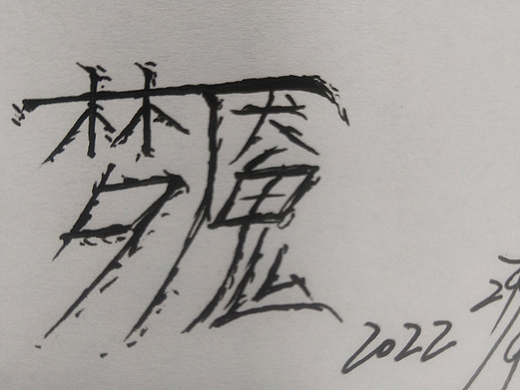 梦魇
2022